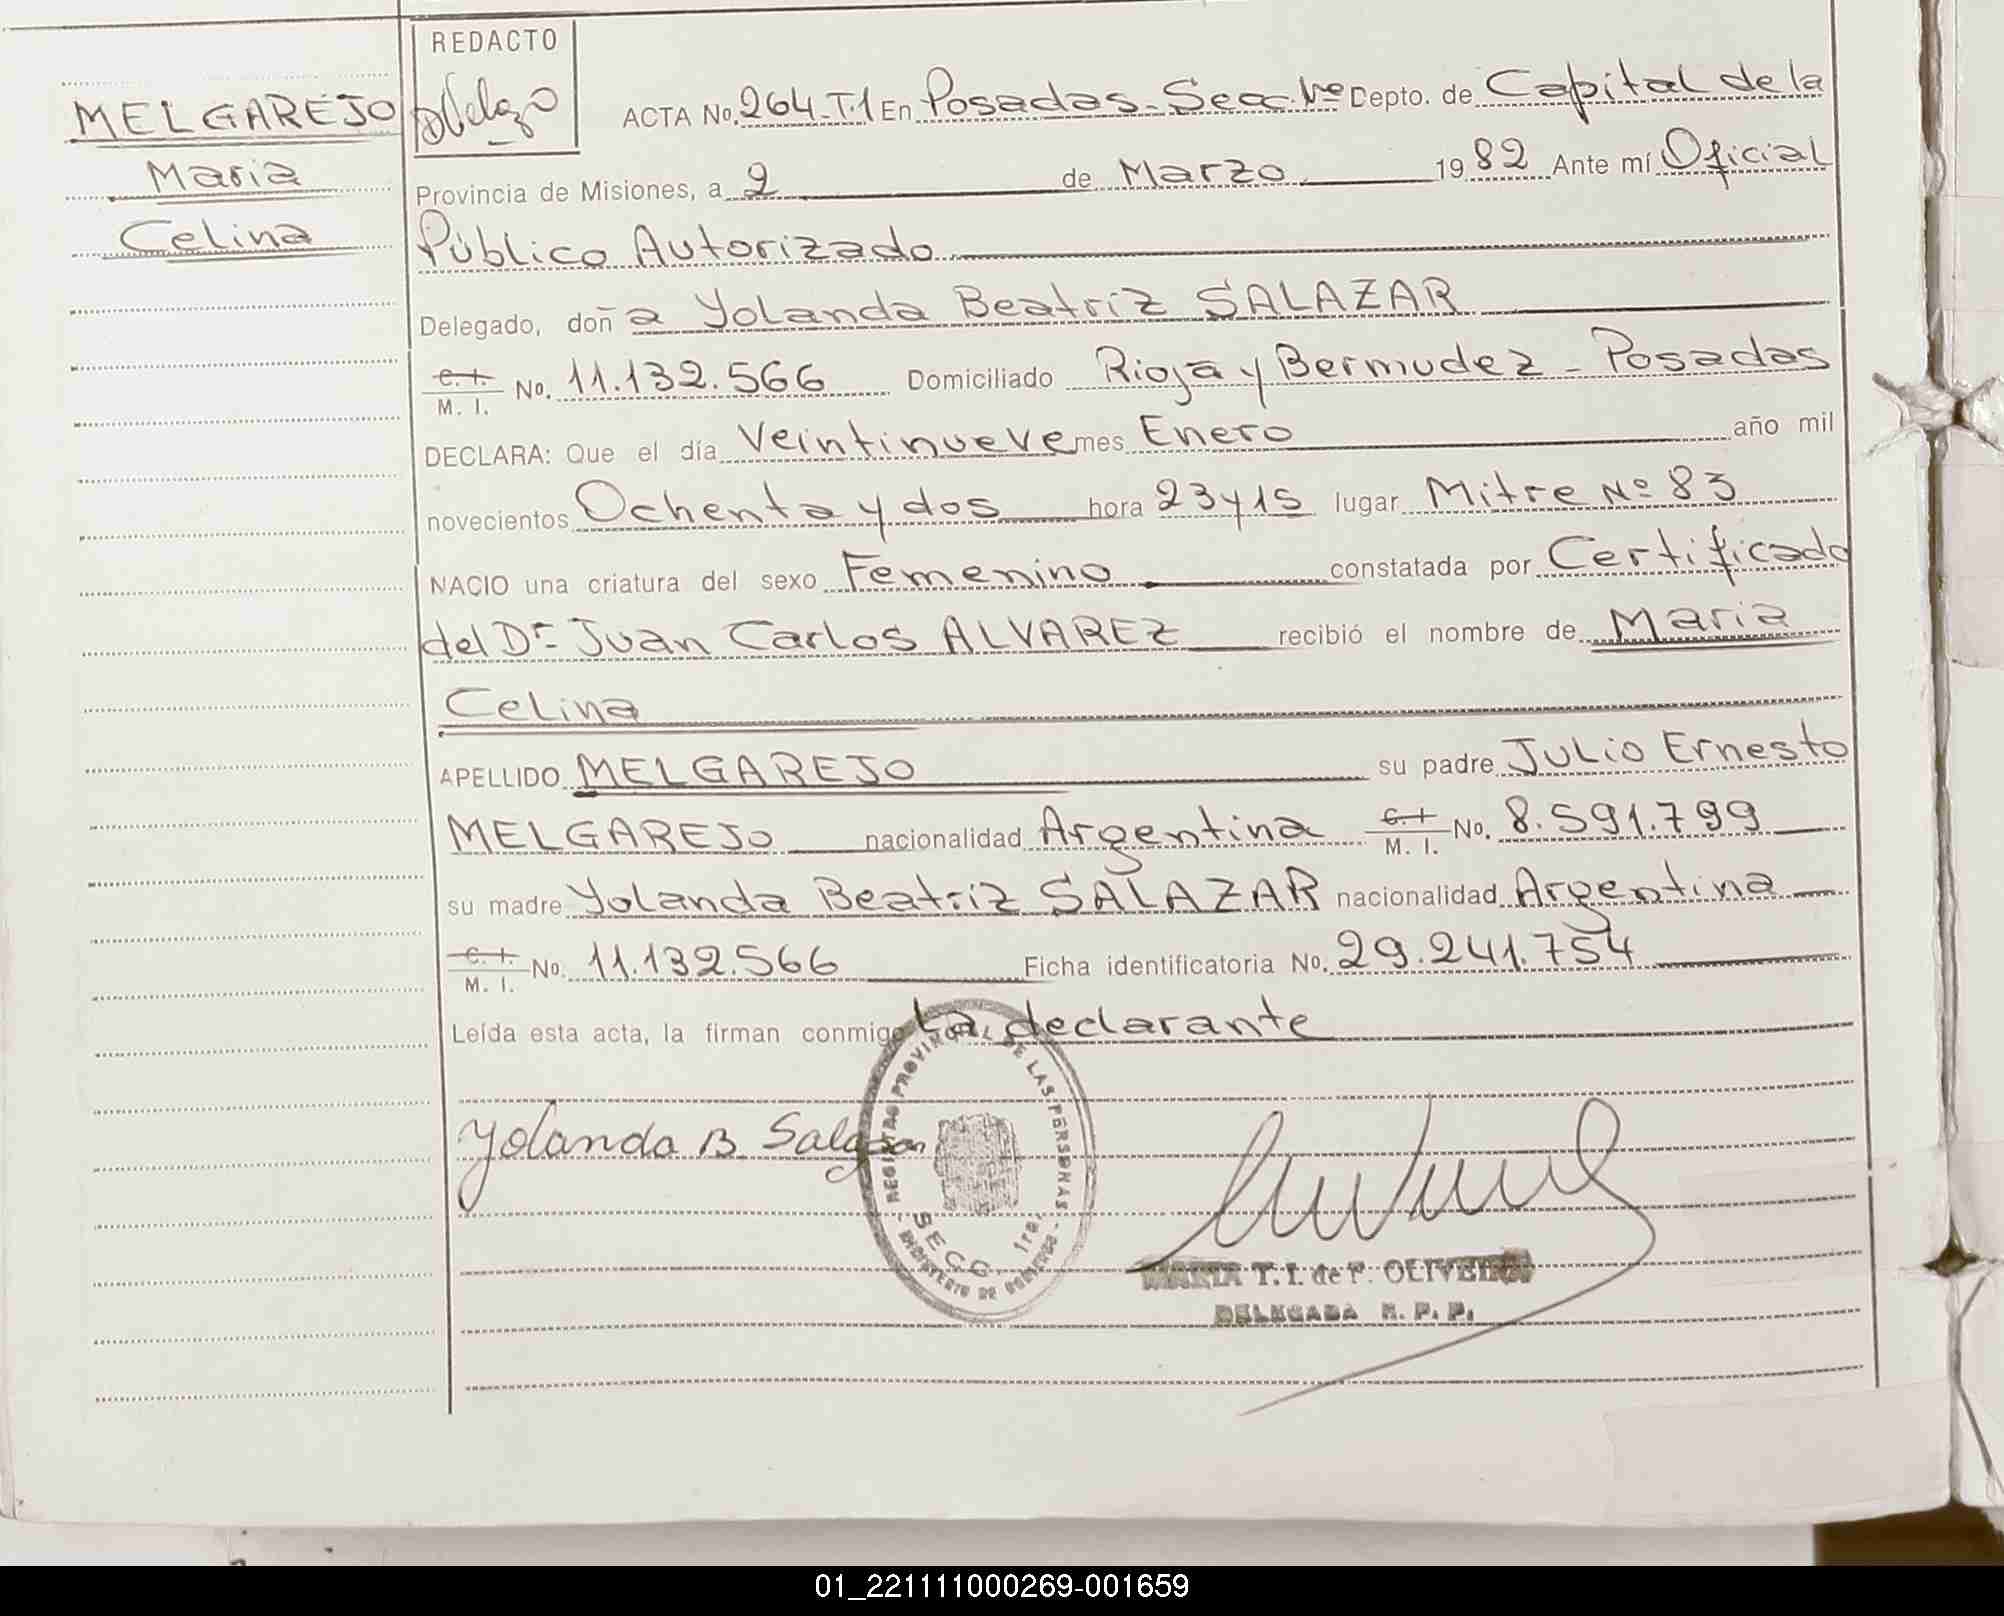 REDACTO
MELGAREJO
Maria
Celina
ACTA No. 264-T.1 En Posadas-Secc. 1ra Depto. de Capital de la
Provincia de Misiones, a 2 de Marzo 1982 Ante mí Oficial
Público Autorizado
Delegado, doña Yolanda Beatriz SALAZAR
C. I. M. I. No. 11.132.566 Domiciliado Rioja y Bermudez - Posadas
DECLARA: Que el día Veintinueve mes Enero año mil
novecientos Ochenta y dos hora 23 y 15 lugar Mitre Nº 83
NACIO una criatura del sexo Femenino constatada por Certificado
del Dr. Juan Carlos ALVAREZ recibió el nombre de Maria
Celina
APELLIDO MELGAREJO su padre Julio Ernesto
MELGAREJO nacionalidad Argentina C. I. M. I. No. 8.591.799
su madre Yolanda Beatriz SALAZAR nacionalidad Argentina
C. I. M. I. No. 11.132.566 Ficha identificatoria No. 29.241.754
Leída esta acta, la firman conmigo la declarante
Yolanda B. Salazar
REGISTRO PROVINCIAL DE LAS PERSONAS
SECC. 1ra.
MINISTERIO DE GOBIERNO
MARIA T. I. de F. OLIVEIRA
DELEGADA R. P. P.
01_221111000269-001659